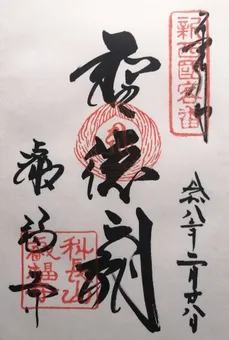 奉拝
新西国客番
聖徳廟
叡福寺
科長山
叡福寺
令和八年二月廿八日